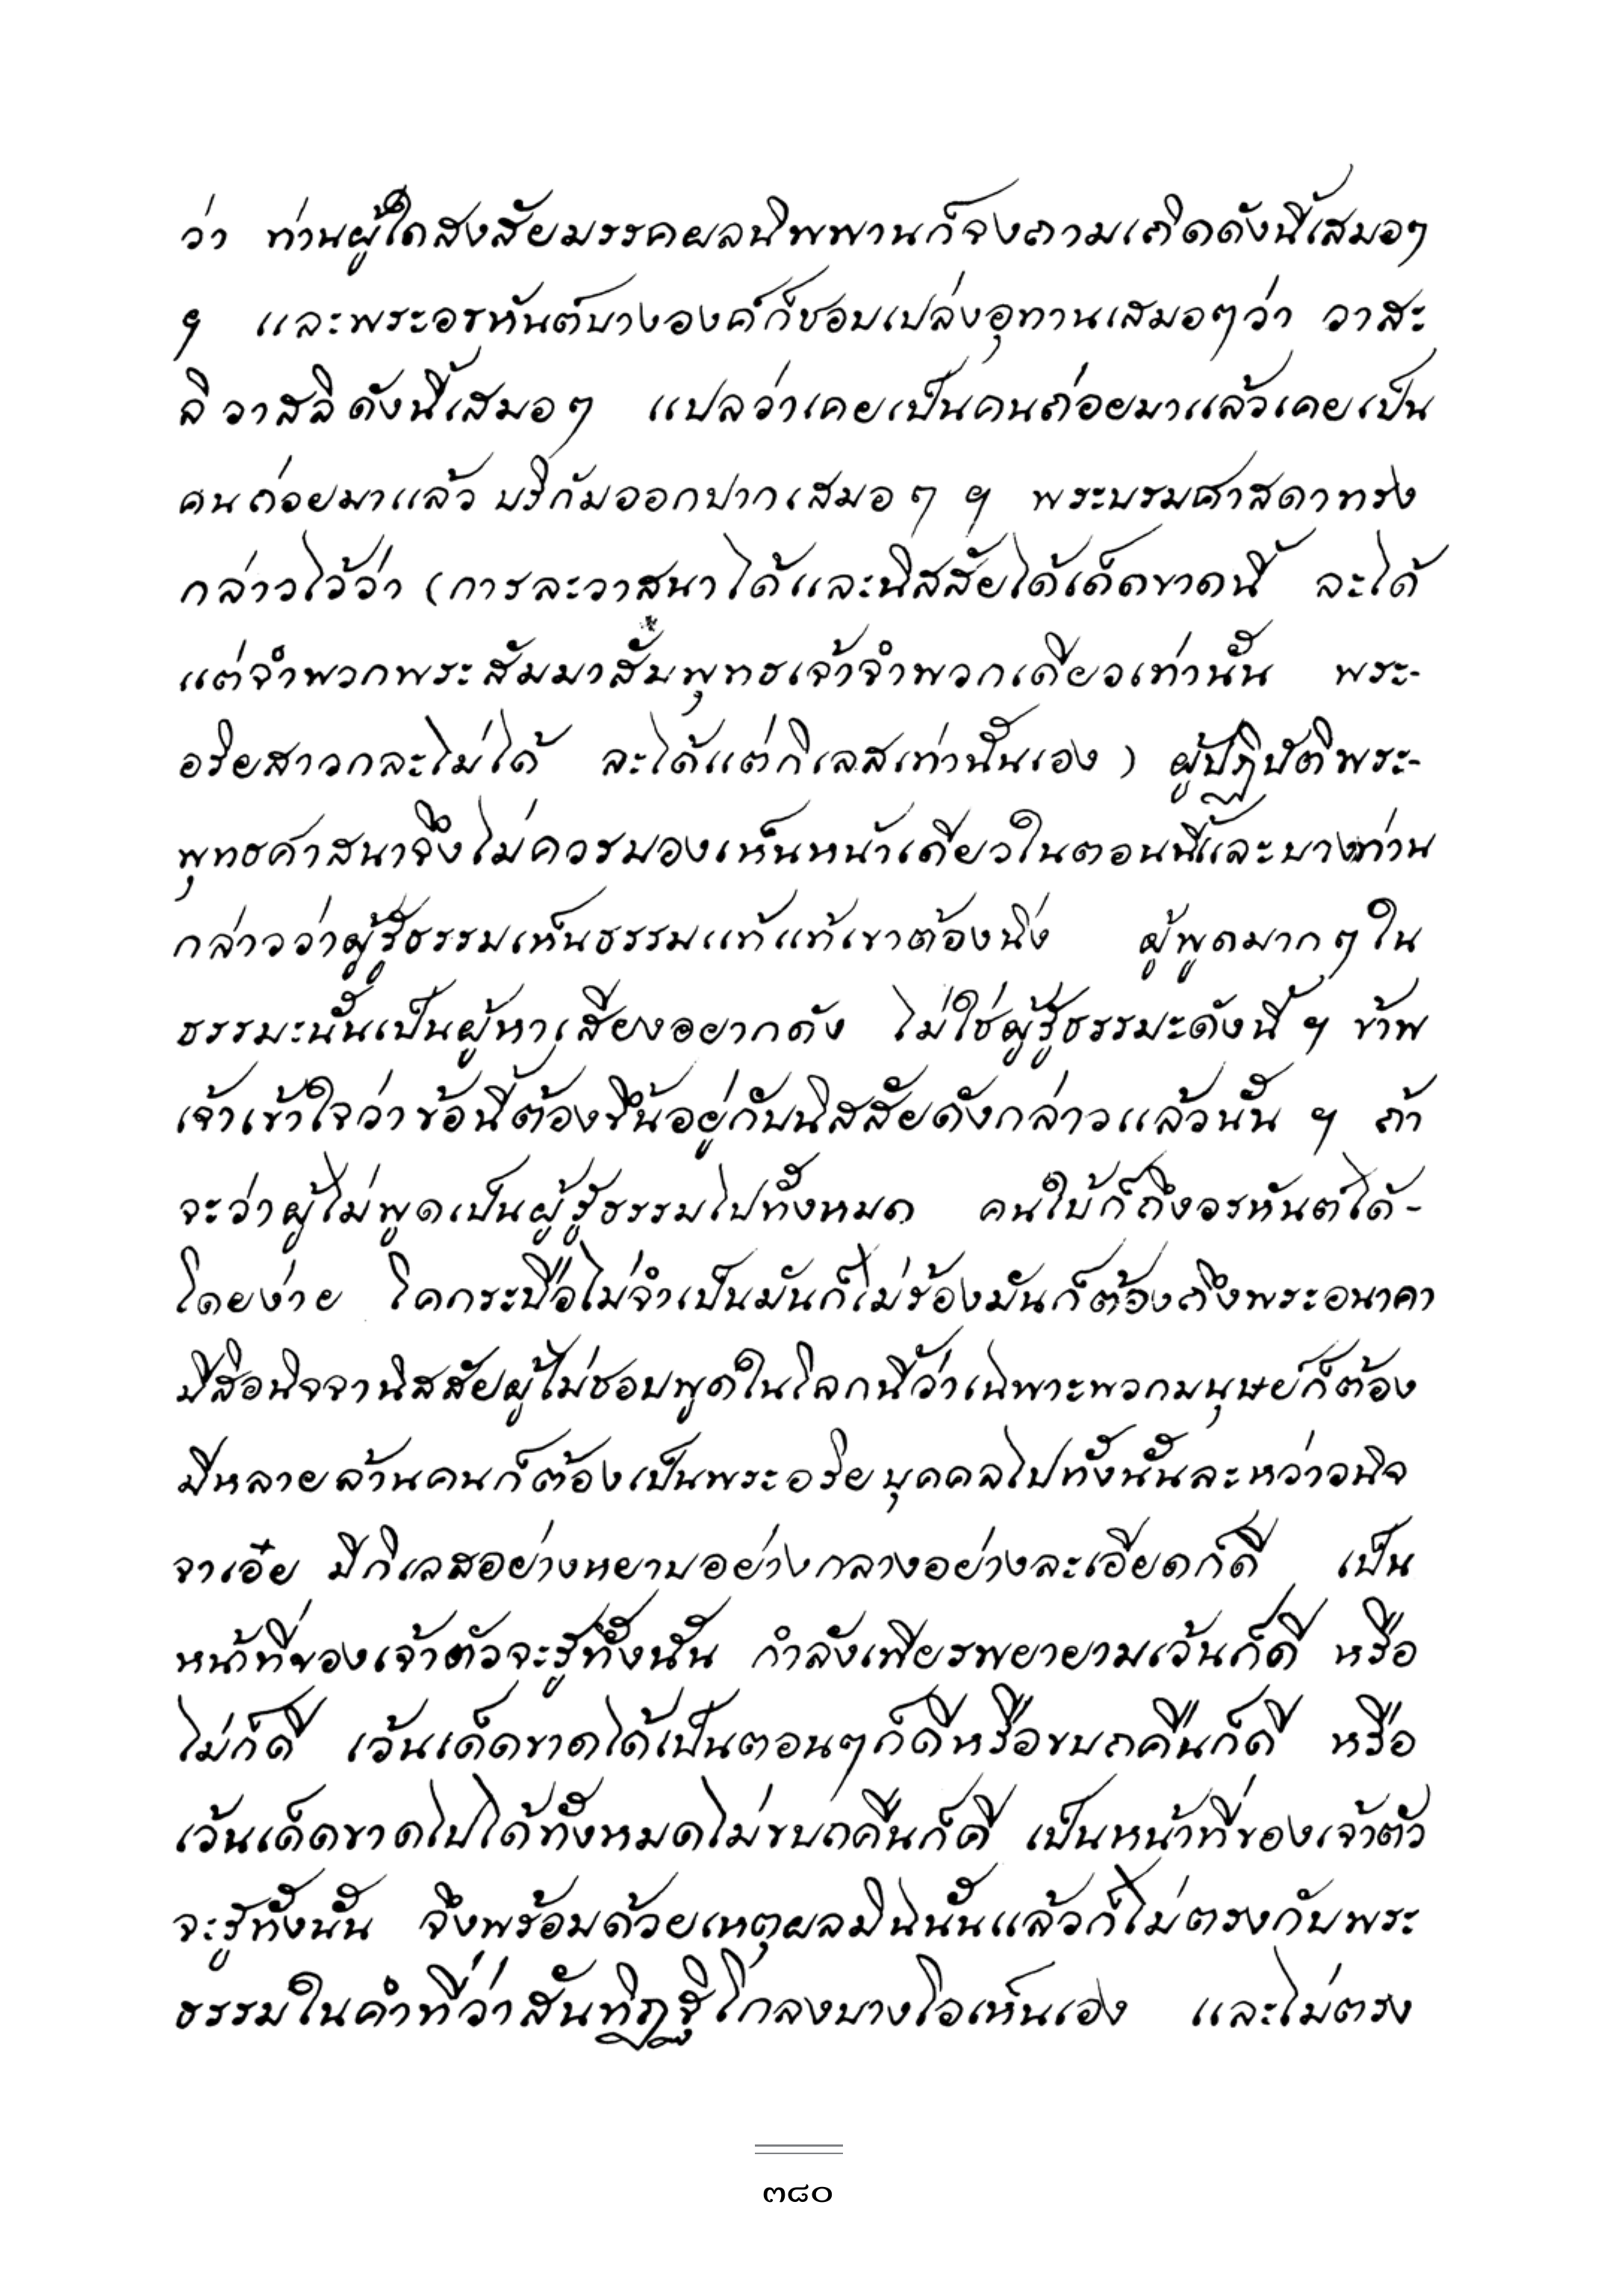 ว่า ท่านผู้ใดสงสัยมรรคผลนิพพานก็จงถามเถิดดังนี้เสมอๆ
ฯ และพระอรหันต์บางองค์ก็ชอบเปล่งอุทานเสมอๆว่า วาสะ
ลิ วาสลิ ดังนี้เสมอๆ แปลว่าเคยเป็นคนถ่อยมาแล้วเคยเป็น
คนถ่อยมาแล้ว บริกัมออกปากเสมอๆ ฯ พระบรมศาสดาทรง
กล่าวไว้ว่า (การละวาสนาได้และนิสสัยได้เด็ดขาดนี้ ละได้
แต่จำพวกพระสัมมาสัมพุทธเจ้าจำพวกเดียวเท่านั้น พระ-
อริยสาวกละไม่ได้ ละได้แต่กิเลสเท่านั้นเอง) ผู้ปฏิบัติพระ-
พุทธศาสนาจึงไม่ควรมองเห็นหน้าเดียวในตอนนี้และบางท่าน
กล่าวว่าผู้รู้ธรรมเห็นธรรมแท้แท้เขาต้องนิ่ง ผู้พูดมากๆใน
ธรรมะนั้นเป็นผู้หาเสียงอยากดัง ไม่ใช่ผู้รู้ธรรมะดังนี้ ฯ ข้าพ
เจ้าเข้าใจว่าข้อนี้ต้องขึ้นอยู่กับนิสสัยดังกล่าวแล้วนั้น ฯ ถ้า
จะว่าผู้ไม่พูดเป็นผู้รู้ธรรมไปทั้งหมด คนใบ้ก็ถึงอรหันต์ได้-
โดยง่าย โคกระบือไม่จำเป็นมันก็ไม่ร้องมันก็ต้องถึงพระอนาคา
มีสิอนิจจานิสสัยผู้ไม่ชอบพูดในโลกนี้ว่าเฉพาะพวกมนุษย์ก็ต้อง
มีหลายล้านคนก็ต้องเป็นพระอริยบุคคลไปทั้งนั้นละหว่าอนิจ
จาเอ๋ย มีกิเลสอย่างหยาบอย่างกลางอย่างละเอียดก็ดี เป็น
หน้าที่ของเจ้าตัวจะรู้ทั้งนั้น กำลังเพียรพยายามเว้นก็ดี หรือ
ไม่ก็ดี เว้นเด็ดขาดได้เป็นตอนๆก็ดีหรือขบถคืนก็ดี หรือ
เว้นเด็ดขาดไปได้ทั้งหมดไม่ขบถคืนก็ดี เป็นหน้าที่ของเจ้าตัว
จะรู้ทั้งนั้น จึงพร้อมด้วยเหตุผลมิฉนั้นแล้วก็ไม่ตรงกับพระ
ธรรมในคำที่ว่าสันทิฏฐิโกลงบางโอเห็นเอง และไม่ตรง
๓๘๐